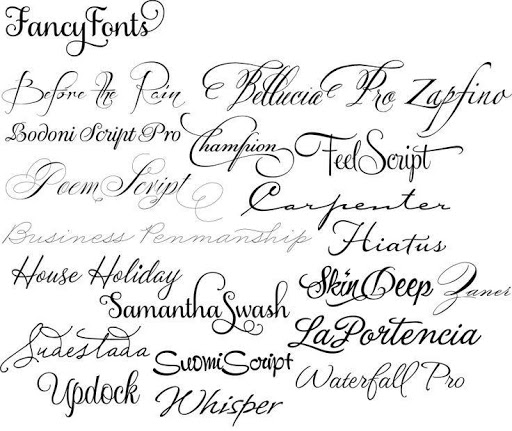 FancyFonts
Before the Rain
Bellucia Pro
Zapfino
Bodoni Script Pro
Champion
FeelScript
Poem Script
Carpenter
Business Penmanship
Hiatus
House Holiday
SkinDeep
Zaner
SamanthaSwash
LaPortencia
Sudestada
SuomiScript
Waterfall Pro
Updock
Whisper